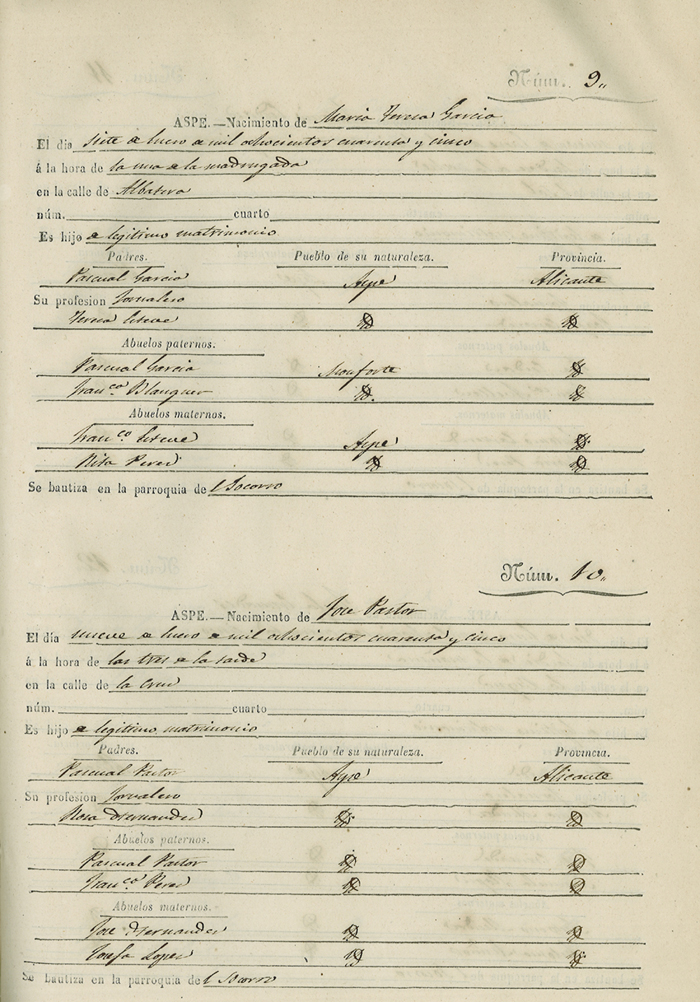 Núm. 9.,
ASPE.—Nacimiento de Maria Teresa Garcia
El dia siete de Enero de mil ochocientos cuarenta y cinco
á la hora de la una de la madrugada
en la calle de Albatera
núm. cuarto
Es hijo de legitimo matrimonio
Padres. Pueblo de su naturaleza. Provincia.
Pascual Garcia Aspe Alicante
Su profesion Jornalero
Teresa Esteve Yd. Yd.
Abuelos paternos.
Pascual Garcia Monforte Yd.
Franca. Blanquer Yd. Yd.
Abuelos maternos.
Franco. Esteve Aspe Yd.
Rita Perez Yd. Yd.
Se bautiza en la parroquia del Socorro
Núm. 10.,
ASPE.—Nacimiento de Jose Pastor
El día nueve de Enero de mil ochocientos cuarenta y cinco
á la hora de las tres de la tarde
en la calle de la Cruz
núm. cuarto
Es hijo de legitimo matrimonio
Padres. Pueblo de su naturaleza. Provincia.
Pascual Pastor Aspe Alicante
Su profesion Jornalero
Rosa Hernandez Yd. Yd.
Abuelos paternos.
Pascual Pastor Yd. Yd.
Franca. Perez Yd. Yd.
Abuelos maternos.
Jose Hernandez Yd. Yd.
Josefa Lopez Yd. Yd.
Se bautiza en la parroquia del Socorro